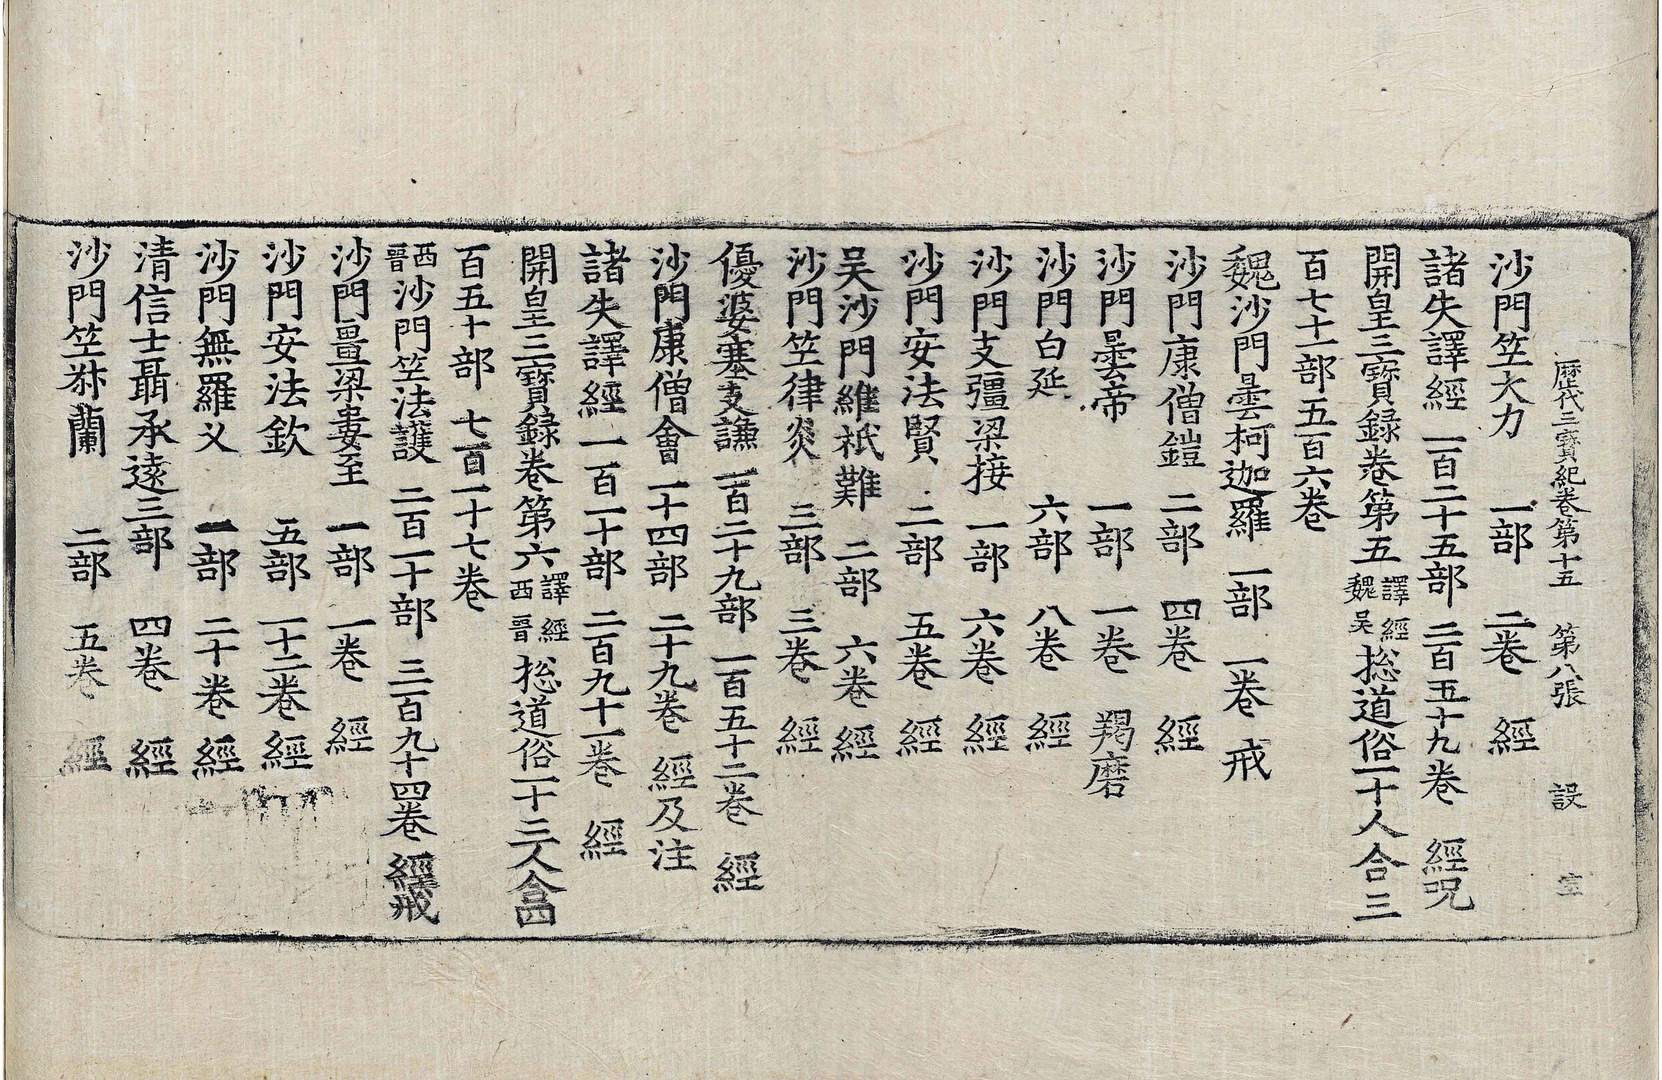 歷代三寶紀卷第十五 第八張 設
沙門竺大力 一部 二卷 經
諸失譯經 一百二十五部 二百五十九卷 經呪
開皇三寶錄卷第五 譯經 魏吳 揔道俗一十人合三
百七十一部五百六卷
魏沙門曇柯迦羅 一部 一卷 戒
沙門康僧鎧 二部 四卷 經
沙門曇帝 一部 一卷 羯磨
沙門白延 六部 八卷 經
沙門支彊梁接 一部 六卷 經
沙門安法賢 二部 五卷 經
吴沙門維祇難 二部 六卷 經
沙門竺律炎 三部 三卷 經
優婆塞支謙 一百二十九部 一百五十二卷 經
沙門康僧會 一十四部 二十九卷 經及注
諸失譯經 一百一十部 二百九十一卷 經
開皇三寶錄卷第六 譯經 西晉 揔道俗一十三人合四
百五十部 七百一十七卷
西晉沙門竺法護 二百一十部 三百九十四卷 經戒
沙門畺梁婁至 一部 一卷 經
沙門安法欽 五部 一十二卷 經
沙門無羅义 一部 二十卷 經
清信士聶承遠三部 四卷 經
沙門竺㳤蘭 二部 五卷 經